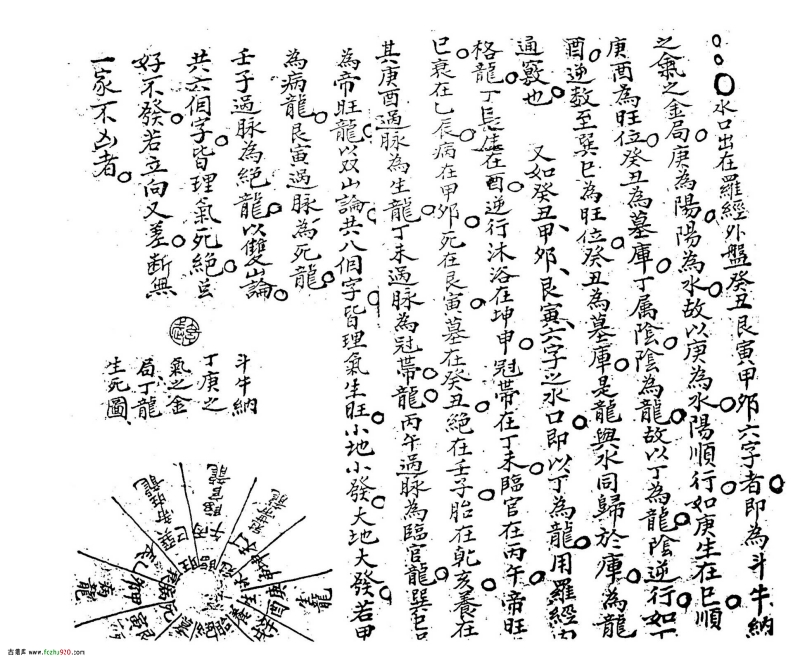 水口出在羅經外盤癸丑艮寅甲夘六字者即為斗牛納
之氣之金局庚為陽陽為水故以庚為水陽順行如庚生在巳順
庚酉為旺位癸丑為墓庫丁属陰陰為龍故以丁為龍陰逆行如丁
酉逆数至巽巳為旺位癸丑為墓庫是龍與水同歸於庫為龍
通竅也 又如癸丑、甲夘、艮寅、六字之水口即以丁為龍用羅經内
格龍丁長生在酉逆行沐浴在坤申冠帯在丁未臨官在丙午帝旺
巳衰在乙辰病在甲夘死在艮寅墓在癸丑絕在壬子胎在乾亥養在
其庚酉過脉為生龍丁未過脉為冠帯龍丙午過脉為臨官龍巽巳
為帝旺龍以双山論共八個字皆理氣生旺小地小發大地大發若甲
為病龍艮寅過脉為死龍
壬子過脉為絕龍以雙山論
共六個字皆理氣死絕
好不發若立向又差断無
一家不凶者
斗牛納
丁庚之
氣之金
局丁龍
生死圖
臨官龍
丙
午
巽
巳
病龍
www.fczhu920.com